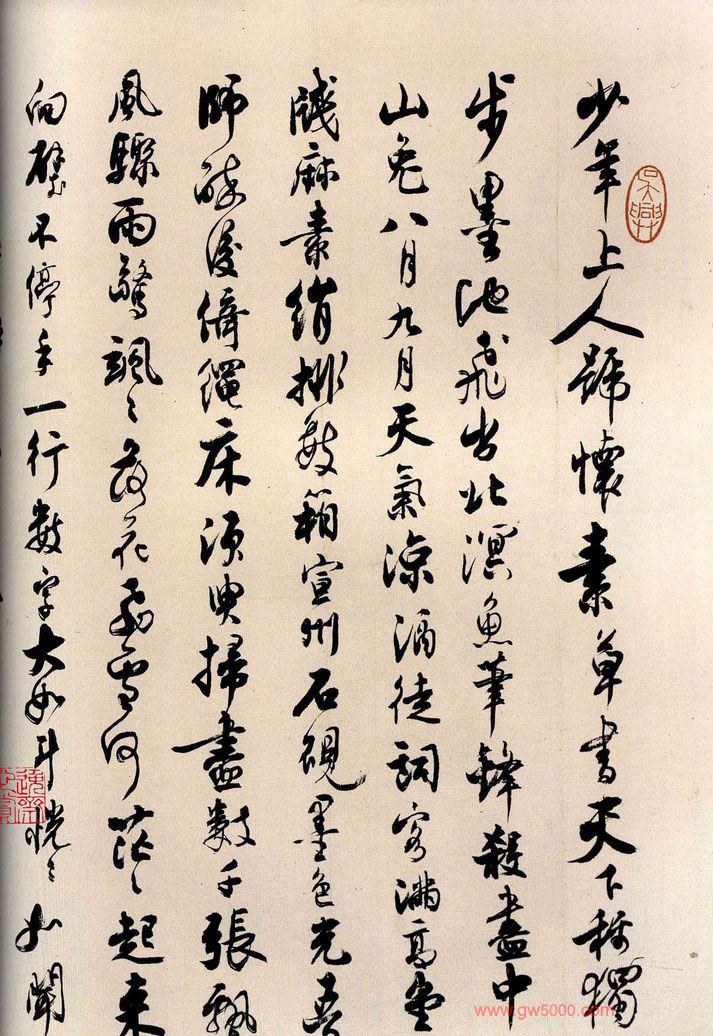 少年上人號懷素草書天下稱獨
步墨池飛出北溟魚筆鋒殺盡中
山兔八月九月天氣涼酒徒詞客滿高堂
牋麻素絹排數箱宣州石硯墨色光吾
師醉後倚繩床須臾掃盡數千張飄
風驟雨驚颯〻落花飛雪何茫〻起来
向壁不停手一行數字大如斗恍〻如聞
吳興
www.gw5000.com